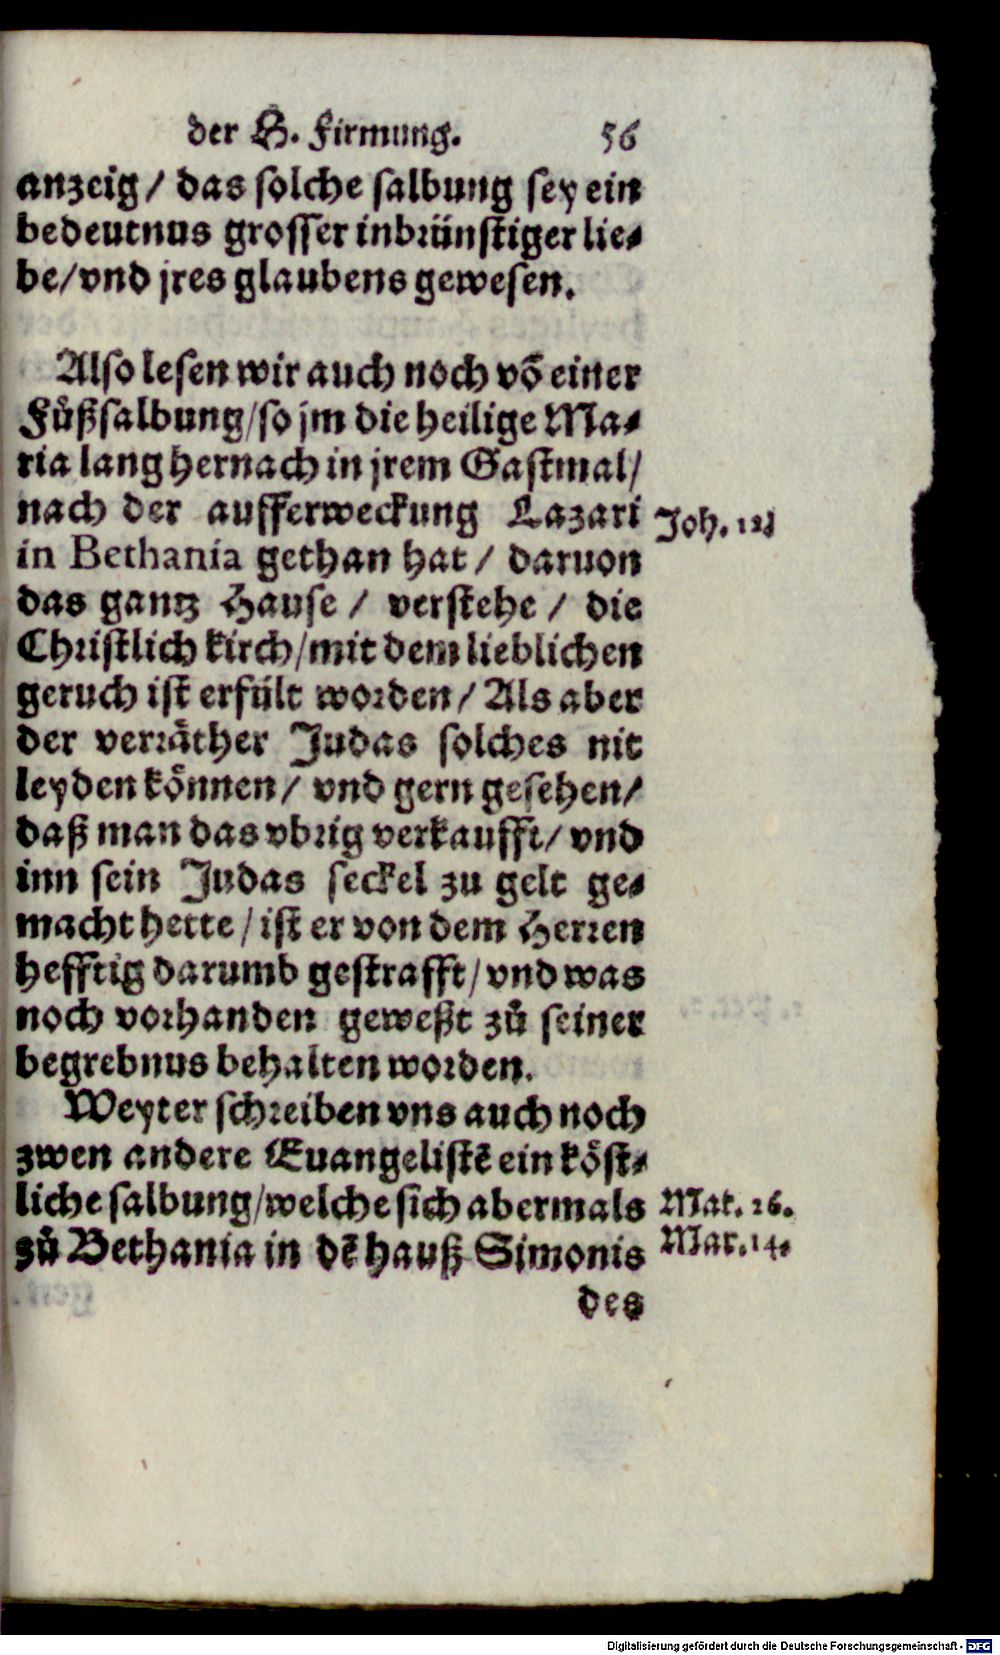 der H. Firmung. 56
anzeig / das solche salbung sey ein
bedeutnus grosser inbrünstiger lie-
be/vnd jres glaubens gewesen.
Also lesen wir auch noch võ einer
Fůßsalbung/so jm die heilige Ma-
ria lang hernach in jrem Gastmal/
nach der aufferweckung Lazari
Joh. 12
in Bethania gethan hat / daruon
das gantz Hause / verstehe / die
Christlich kirch/mit dem lieblichen
geruch ist erfült worden / Als aber
der verräther Judas solches nit
leyden können / vnd gern gesehen/
daß man das vbrig verkaufft/ vnd
inn sein Judas seckel zu gelt ge-
macht hette / ist er von dem Herren
hefftig darumb gestrafft/vnd was
noch vorhanden geweßt zů seiner
begrebnus behalten worden.
Weyter schreiben vns auch noch
zwen andere Euangelistẽ ein köst-
liche salbung/welche sich abermals
Mat. 26.
zů Bethania in dẽ hauß Simonis
Mar. 14.
des
Digitalisierung gefördert durch die Deutsche Forschungsgemeinschaft - DFG